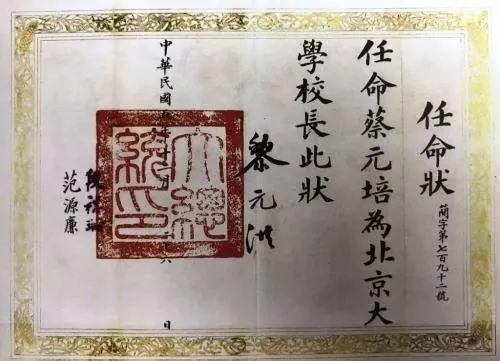 任命狀
簡字第七百九十二號
任命蔡元培為北京大
學校長此狀
黎元洪
大總
統印
中華民國年十月六日
段祺瑞
范源廉